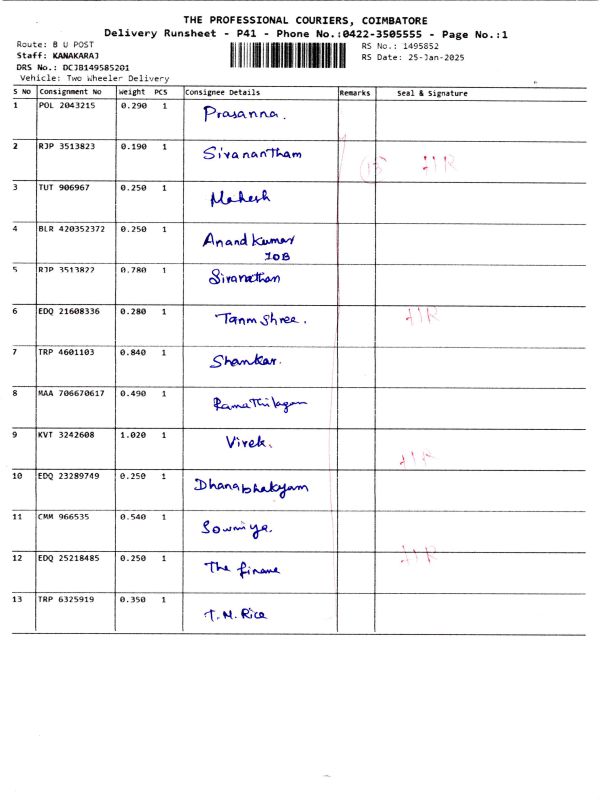 THE PROFESSIONAL COURIERS, COIMBATORE
Delivery Runsheet - P41 - Phone No.:0422-3505555 - Page No.:1
Route: B U POST RS No.: 1495852
Staff: KANAKARAJ RS Date: 25-Jan-2025
DRS No.: DCJB149585201
Vehicle: Two Wheeler Delivery
S No Consignment No Weight PCS Consignee Details Remarks Seal & Signature
1 POL 2043215 0.290 1 Prasanna.
2 RJP 3513823 0.190 1 Sivanantham (13) AIR
3 TUT 906967 0.250 1 Mahesh
4 BLR 420352372 0.250 1 Anand Kumar
IOB
5 RJP 3513822 0.780 1 Sivanathan
6 EDQ 21608336 0.280 1 Tanmshree. AIR
7 TRP 4601103 0.840 1 Shankar.
8 MAA 706670617 0.490 1 Ramathilagam
9 KVT 3242608 1.020 1 Vivek. AIR
10 EDQ 23289749 0.250 1 Dhanabhakyam
11 CMM 966535 0.540 1 Sowmiya.
12 EDQ 25218485 0.250 1 The finane AIR
13 TRP 6325919 0.350 1 T.M. Rice